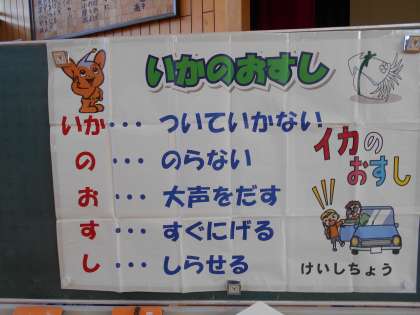 いかのおすし
いか・・・ついていかない
の・・・のらない
お・・・大声をだす
す・・・すぐにげる
し・・・しらせる
イカの
おすし
けいしちょう